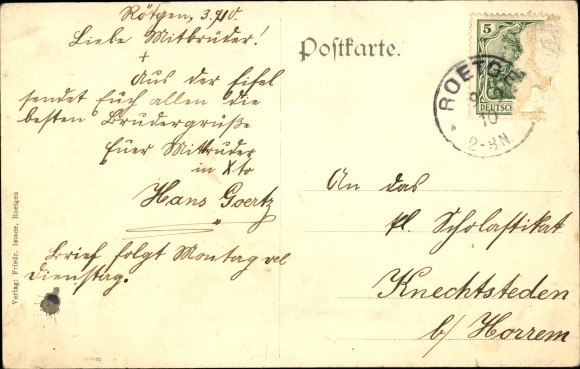 Rötgen, 3.9.10.
Liebe Mitbrüder!
+
Aus der Eifel
sendet Euch allen die
besten Brudergrüße
Euer Mitbruder
in Xto
Hans Goertz
Brief folgt Montag vel
Dienstag.
Postkarte.
5
DEUTSCH
ROETGE
10
2-8N
An das
pl. Scholastikat
Knechtsteden
b/ Horrem
Verlag: Friedr. Roetgen